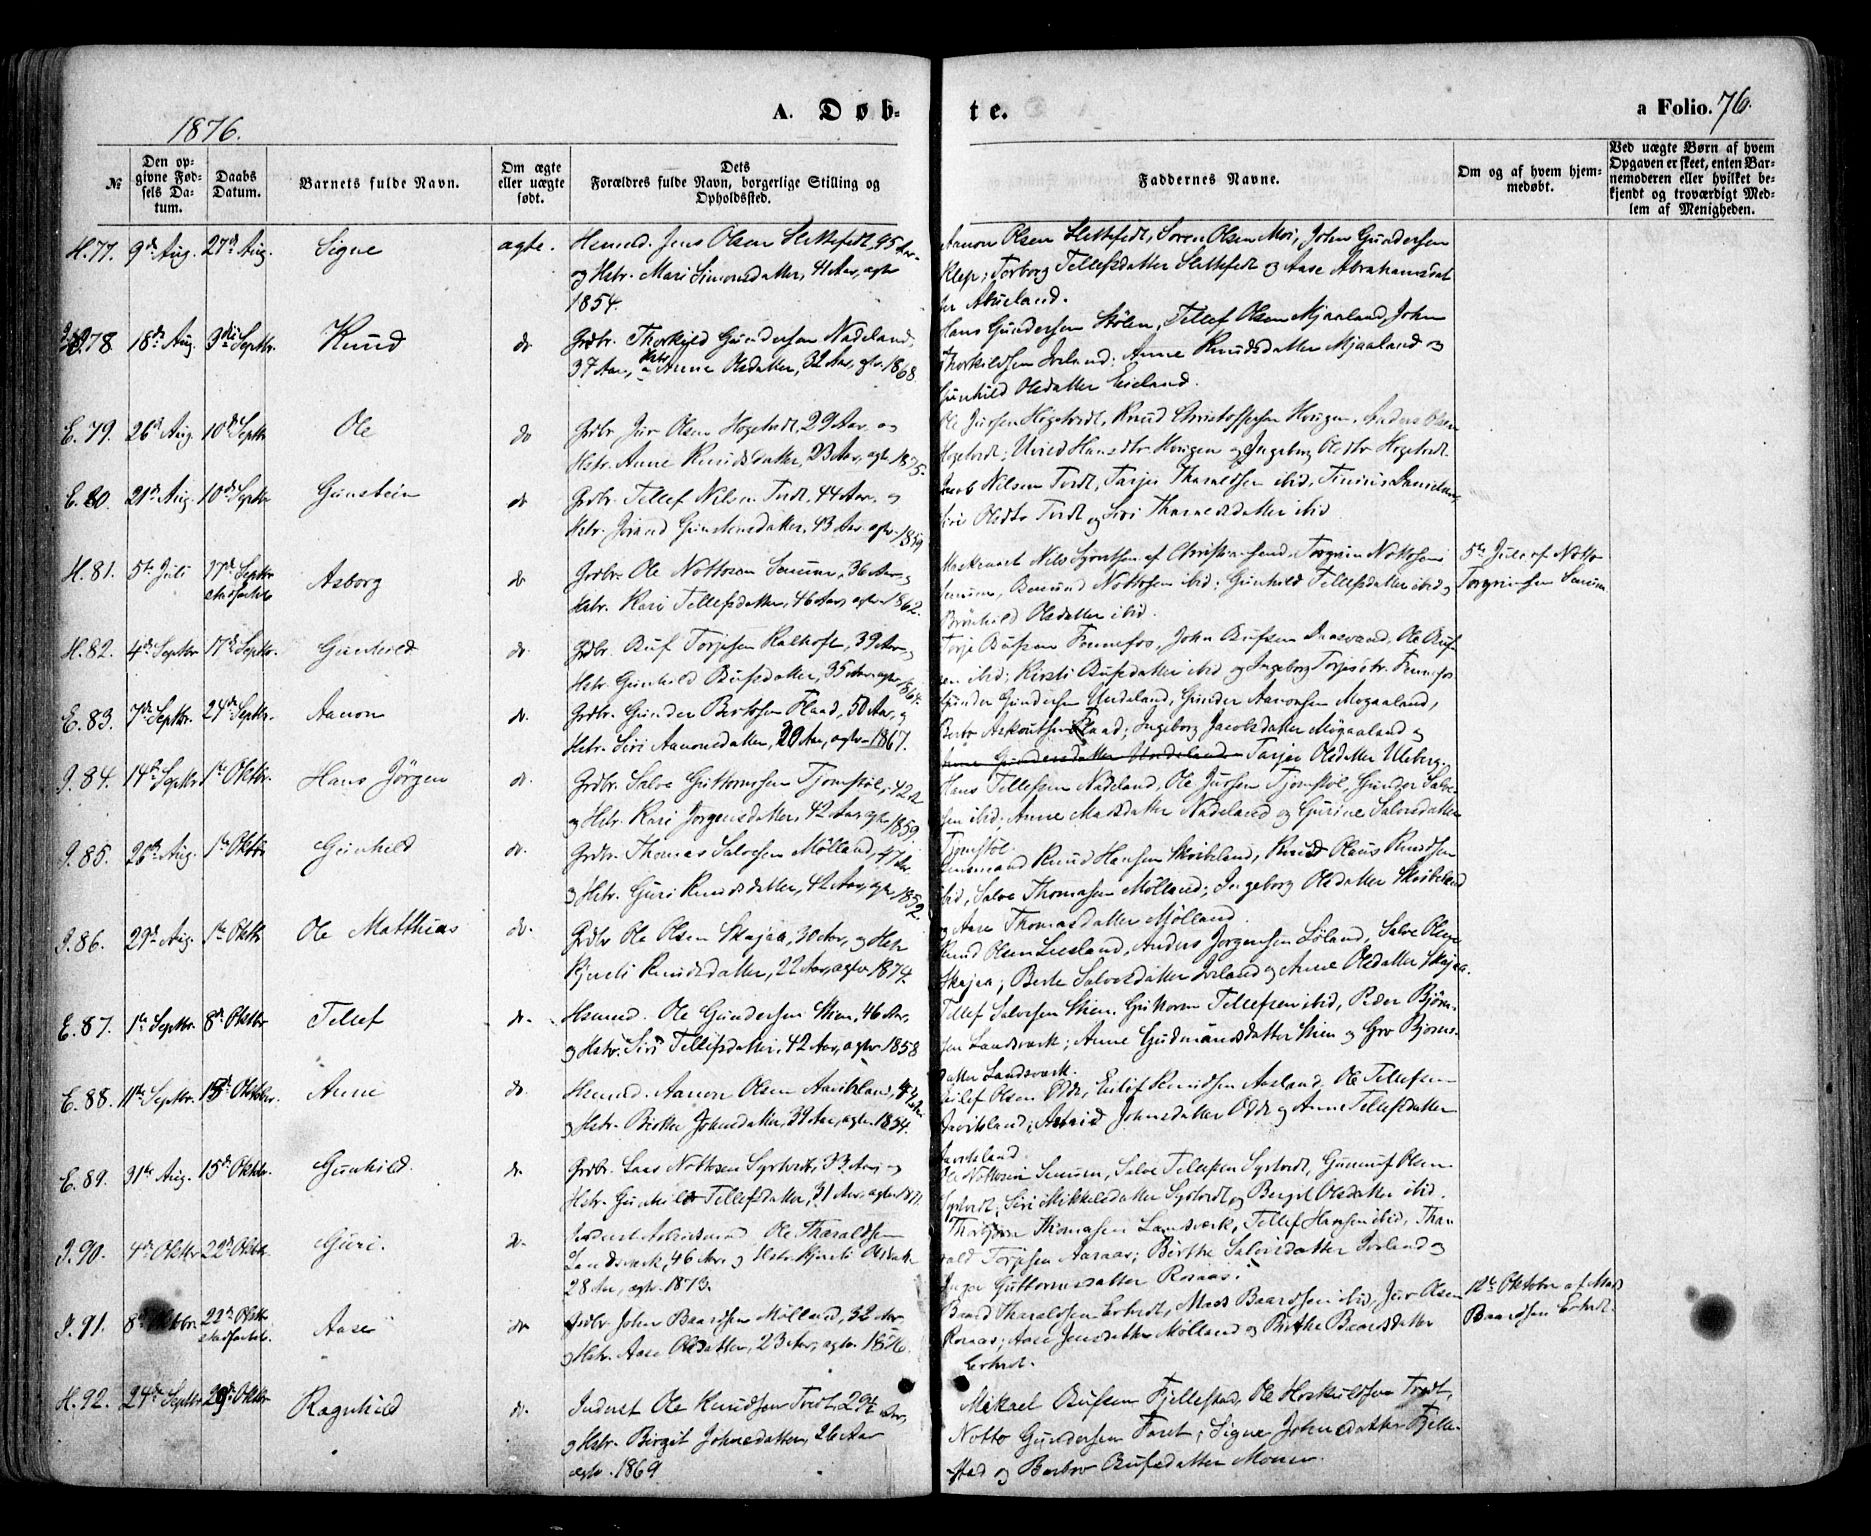 1876.
A. Døb-
te.
a Folio. 76.
№
Den opgivne Fødsels Datum.
Daabs Datum.
Barnets fulde Navn.
Om ægte eller uægte født.
Dets
Forældres fulde Navn, borgerlige Stilling og
Opholdssted.
Faddernes Navne.
Om og af hvem hjemmedøbt.
Ved uægte Børn af hvem
Opgaven er skeet, enten Bar-
nemoderen eller hvilket be-
kjendt og troværdigt Med-
lem af Menigheden.
H. 77. 9de Aug. 27de Aug. Signe ægte.
Husmd. Jens Olsen Slettefedt, 45 Aar
og Hstr. Mari Simonsdatter, 41 Aar, egtv.
1854.
Aanon Olsen Slettefedt, Søren Olsen Moi, John Gundersen
Klep; Torborg Tellefsdatter Slettefedt og Aase Abrahamsdat
ter
78. 18de Aug. 3die Septbr. Knud do
Grdbr. Thorkild Gundersen Nadeland,
37 Aar, og Hstr. Anne Olsdatter, 32 Aar, egtv. 1868
Hans Gundersen Stølen, Tellef Olsen Mjaaland, John
Thorkildsen Ivland; Anne Knudsdatter Mjaaland og
Gunhild Olsdatter Eieland.
E. 79. 26de Aug. 10de Septbr Ole do
Grdbr. Jur Olsen Hogetvedt, 29 Aar, og
Hstr. Anne Knudsdatter, 23 Aar, egtv. 1875.
Ole Jursen Hogetvedt, Knud Christophersen Hougen, Anders Olsen
Hogetvedt; Hansdtr. Hougen og Ingeborg Olsdtr Hogetvedt.
E. 80. 21de Aug. 10de Septbr Gunstein do
Grdbr. Tellef Nilsen Tvedt, 44 Aar, og
Hstr. Jorand Gunsteinsdatter, 43 Aar, egtv. 1859
Jacob Nilsen Tvedt, Tarjei Tharaldsen ibid,
Siri Olsdtr Tvedt og Siri datter ibid.
H. 81. 5te Juli 17de Septbr stadfæstet Asborg do
Grdbr. Ole Nottosen Senum, 36 Aar, og
Hstr. Kari Tellefsdatter, 46 Aar, egtv. 1862.
Nils af Christianssand, Torgrim Nottosen
Senum, Nottosen ibid; Gunhild Tellefsdatter ibid og
Brønhild Olsdatter ibid.
5te Juli af Notto
Torgrimsen Senum
H. 82. 4de Septbr 17de Septbr. Gunhild do
Grdbr. Buf Torjesen Kalhoft, 39 Aar og
Hstr. Gunhild Bufsdatter, 35 Aar, egtv. 1864.
Torje Bufsen Fennefos, John Bufsen Daasvand, Ole Buf-
sen ibid; Kirsti Bufsdatter ibid og Ingeborg Torjesdtr. Fennefos
E. 83. 7de Septbr. 24de Septbr. Aanon do.
Grdbr. Gunder Bertosen Flaad, 50 Aar, og
Hstr. Siri Aanonsdatter, Aar, egtv. 1867.
Gunder Gundersen Undeland, Gunder Aanonsen Mogaaland,
Flaad; Ingeborg Jacobsdatter Mogaaland og
Gundersdatter Tarjer Olsdatter Uleberg.
I. 84. 14de Septbr 1ste Oktbr. Hans Jörgen do.
Grdbr. Salve Guttormsen Tjomstøl, 42 A
og Hstr. Kari Jorgensdatter, 42 Aar, egtv. 1859.
Hans Tellefsen Nadeland, Ole Jursen Tjomstøl, Gunder Salve-
sen ibid; Anne Madsdatter Nadeland og Gurine Salvesdatter
Tjomstøl.
I. 85. 26de Aug. 1ste Oktbr Gunhild do.
Grdbr. Thomas Salvesen Mølland, 47 Aar
og Hstr. Guri Knudsdatter, 42 Aar, egtv. 1852.
Lensmand Knud Hansen Skeibeland, Knud Olaus Knudsen
ibid, Salve Thomasen Mølland; Ingeborg Olsdatter Skeibeland
og Aase Thomasdatter Mølland.
I. 86. 29de Aug. 1ste Oktbr Ole Matthias do.
Grdbr Ole Olsen Skajaa, 30 Aar, og Hstr
Kjersti Knudsdatter, 22 Aar, egtv 1874.
Knud Olsen Liesland, Anders Jorgensen Løland, Salve Olsen
Skajaa; Berte Salvesdatter Ivland og Anne Olsdatter Skajaa.
E. 87. 1ste Septbr. 8de Oktbr Tellef do.
Husmd. Ole Gundersen Skien, 46 Aar,
og Hstr. Siri Tellefsdatter, 42 Aar, egtv 1858
Tellef Salvesen Skien, Guttorm Tellefsen ibid, Peder Bjørn-
sen Landsværk; Anne Gudmundsdatter Skien og Gro Bjorns-
datter Landsværk.
E. 88. 11te Septbr. 15de Oktbr. Anne do.
Husmd. Aanon Olsen Aavitsland, Aar
og Hstr. Birthe Johnsdatter, 39 Aar, egtv. 1854.
Eilef Olsen Odde, Eilef Knudsen Aasland, Ole Tellefsen
Aavitsland; Astrid Johnsdatter Odde og Anne Tellefsdatter
Aavitsland.
E. 89. 31te Aug. 15de Oktbr. Gunhild. do.
Grdbr. Lars Nottosen Syrtvedt, 33 Aar, og
Hstr. Gunhild Tellefsdatter, 31 Aar, egtv 1871.
Ole Nottosen Senum, Salve Tellefsen Syrtvedt, Gunnuf Olsen
Syrtvedt; Siri Mikkelsdatter Syrtvedt og Bergit Olsdatter ibid.
I. 90. 4de Oktbr 22de Oktbr. Guri. do.
Inderst Ole Tharaldsen
Landsværk, 46 Aar og Hstr. Kjersti Olsdatter
28 Aar, egtv. 1873.
Thorbjørn Thomasen Landsværk, Tellef Hansen ibid, Tha-
rald Torjesen Aaraas; Birthe Salvesdatter Ivland og
Inger Guttormsdatter Rosaas.
I. 91. 8de Oktbr. 22de Oktbr stadfæstet. Aase do
Grdbr John Baardsen Mølland, 32 Aar
og Hstr. Aase Olsdatter, 23 Aar, egtv 1876.
Baard Tharaldsen Ertvedt, Mads Baardsen ibid, Jur Olsen
Rosaas; Aase Jensdatter Mølland og Birthe Baardsdatter
Ertvedt.
12te Oktober af Mads
Baardsen Ertvedt.
H. 92. 24de Septbr 29de Oktbr Ragnhild do.
Inderst Ole Knudsen Tvedt, 29½ Aar,
og Hstr. Birgit Johnsdatter, 26 Aar
egtv. 1869
Mikael Bufsen Fjellestad, Ole Hoskuldsen Tvedt,
Notto Gundersen Faret; Signe Johnsdatter Fjelle-
stad og Berbro Bufsdatter Moner.